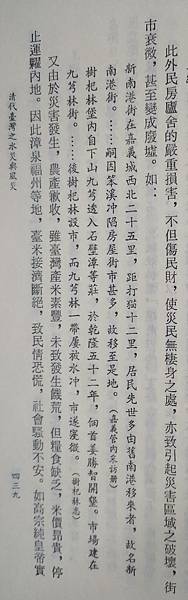 此外民房廬舍的嚴重損害，不但傷民財，使災民無棲身之處，亦致引起災害區域之破壞，街
市衰微，甚至變成廢墟。如：
新南港街在嘉義城西北二十五里，距打猫十二里，居民先世多由舊南港移來者，故名新
南港街。……嗣因笨溪冲陷房屋街市甚多，故移至是地。（嘉義管內采訪册）
樹杞林堡內自下山九芎透入石壁潭等莊，於乾隆五十二年，佃首姜勝智開墾。市場建在
九芎林街。……後樹杞林設市，而九芎林一帶屢被水冲，市遂寖微。（樹杞林志）
又由於災害發生，農產歉收，雖臺灣產米素豐，未致發生饑荒，但糧食缺乏，米價昂貴，停
止運糶內地。因此漳泉福州等地，臺米接濟斷絕，致民情恐慌，社會騷動不安。如高宗純皇帝實
清代臺灣之水災與風災
四三九